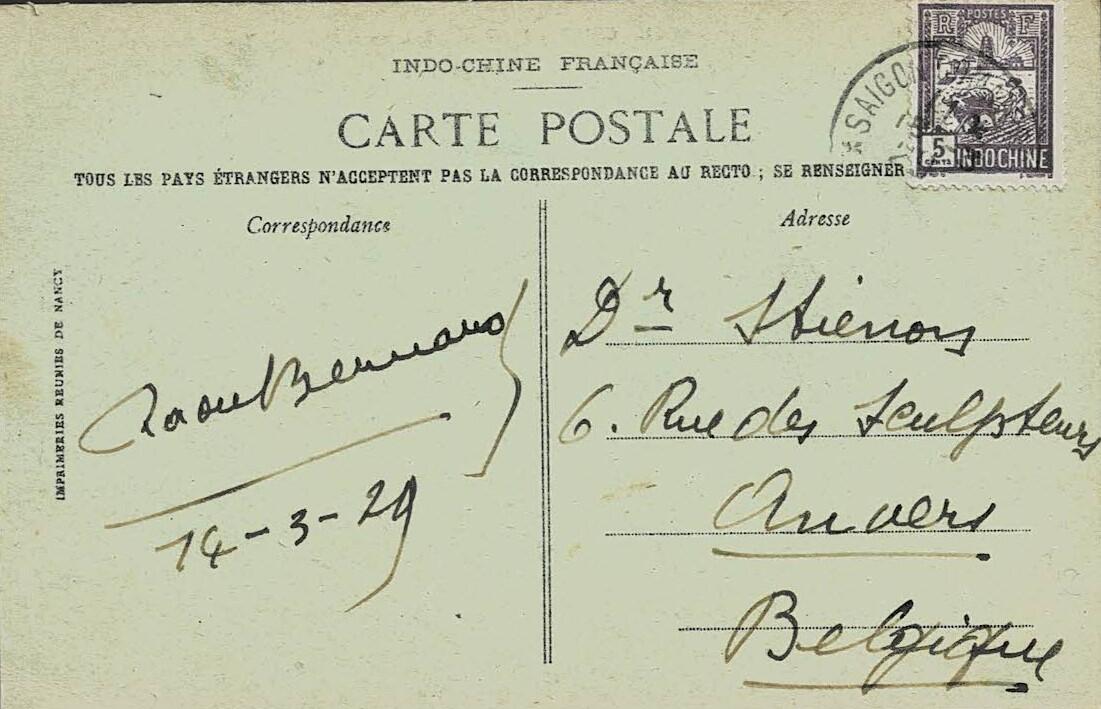 INDO-CHINE FRANÇAISE
CARTE POSTALE
TOUS LES PAYS ÉTRANGERS N'ACCEPTENT PAS LA CORRESPONDANCE AU RECTO ; SE RENSEIGNER
RF POSTES
5 CENTS INDOCHINE
SAIGON
Correspondance
Raoul
14-3-29
IMPRIMERIES REUNIES DE NANCY
Adresse
Dr Stiénon
6. Rue des Sculpteurs
Anvers
Belgique